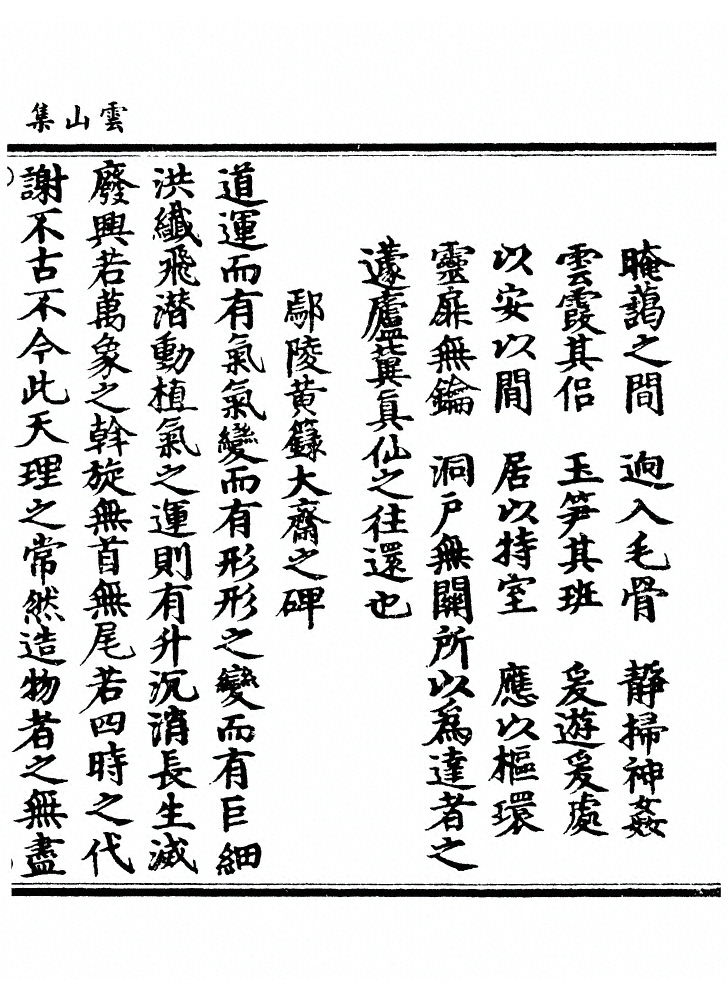 雲山集
晻藹之間　逈入毛骨　靜掃神姦
雲霞其侣　玉笋其班　爰遊爰處
以安以閒　居以持室　應以樞環
靈扉無鑰　洞戶無關所以爲達者之
蘧廬冀真仙之往還也
鄢陵黄籙大齋之碑
道運而有氣氣變而有形形之變而有巨細
洪纖飛潜動植氣之運則有升沉消長生滅
廢興若萬象之斡旋無首無尾若四時之代
謝不古不今此天理之常然造物者之無盡